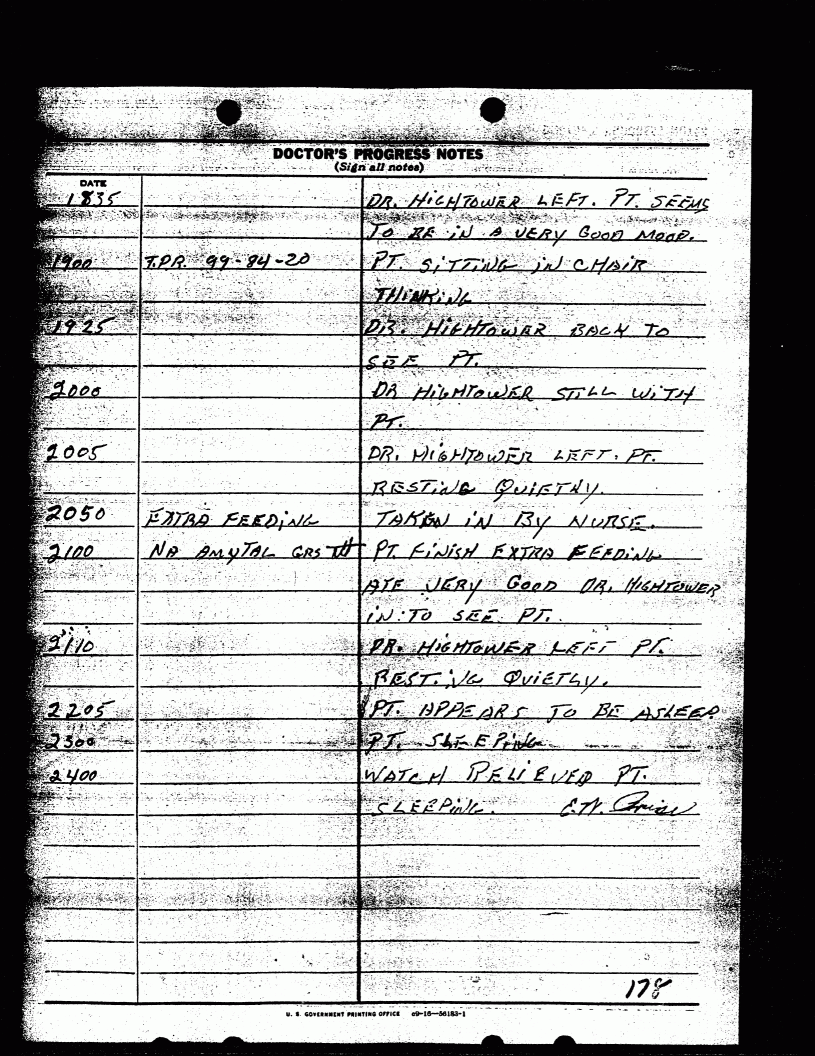 DOCTOR'S PROGRESS NOTES
(Sign all notes)
DATE
1835 DR. HIGHTOWER LEFT. PT. SEEMS
TO BE IN A VERY GOOD MOOD.
1900 T.P.R. 99-84-20 PT. SITTING IN CHAIR
THINKING
1925 DR. HIGHTOWER BACK TO
SEE PT.
2000 DR HIGHTOWER STILL WITH
PT.
2005 DR. HIGHTOWER LEFT. PT.
RESTING QUIETLY.
2050 EXTRA FEEDING TAKEN IN BY NURSE.
2100 NA AMYTAL GRS PT. FINISH EXTRA FEEDING
ATE VERY GOOD DR. HIGHTOWER
IN TO SEE PT.
2110 DR. HIGHTOWER LEFT PT.
RESTING QUIETLY.
2205 PT. APPEARS TO BE ASLEEP
2300 PT. SLEEPING
2400 WATCH RELIEVED PT.
SLEEPING. E.W.
178
U. S. GOVERNMENT PRINTING OFFICE c9-16—56183-1